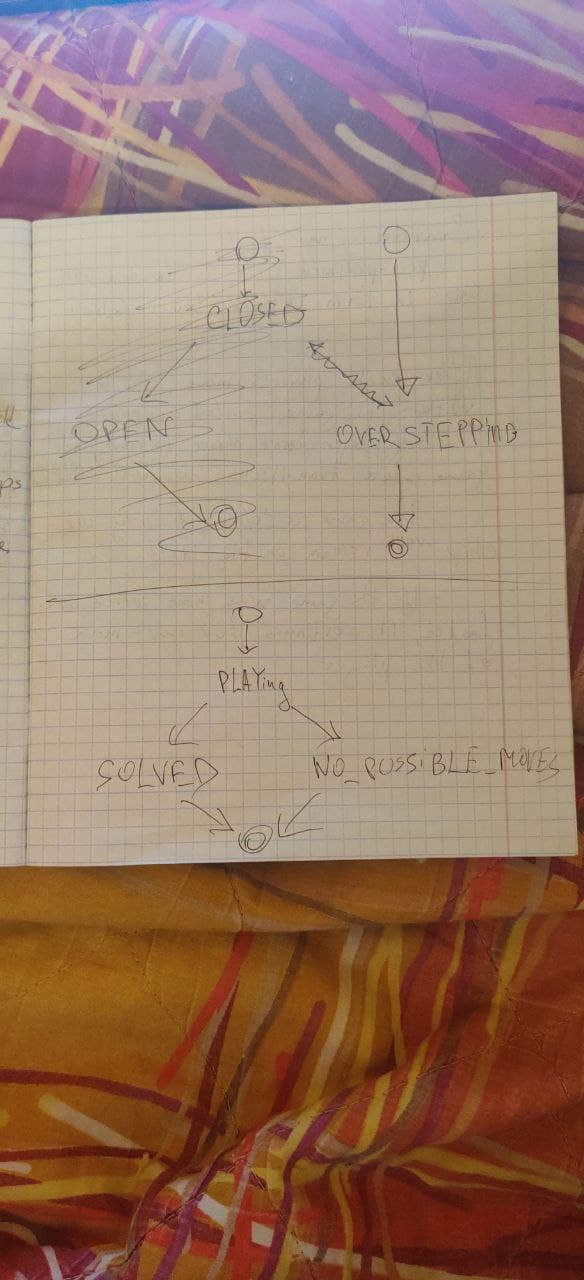 CLOSED
OPEN
OVERSTEPPING
PLAYing
SOLVED
NO_POSSIBLE_MOVES